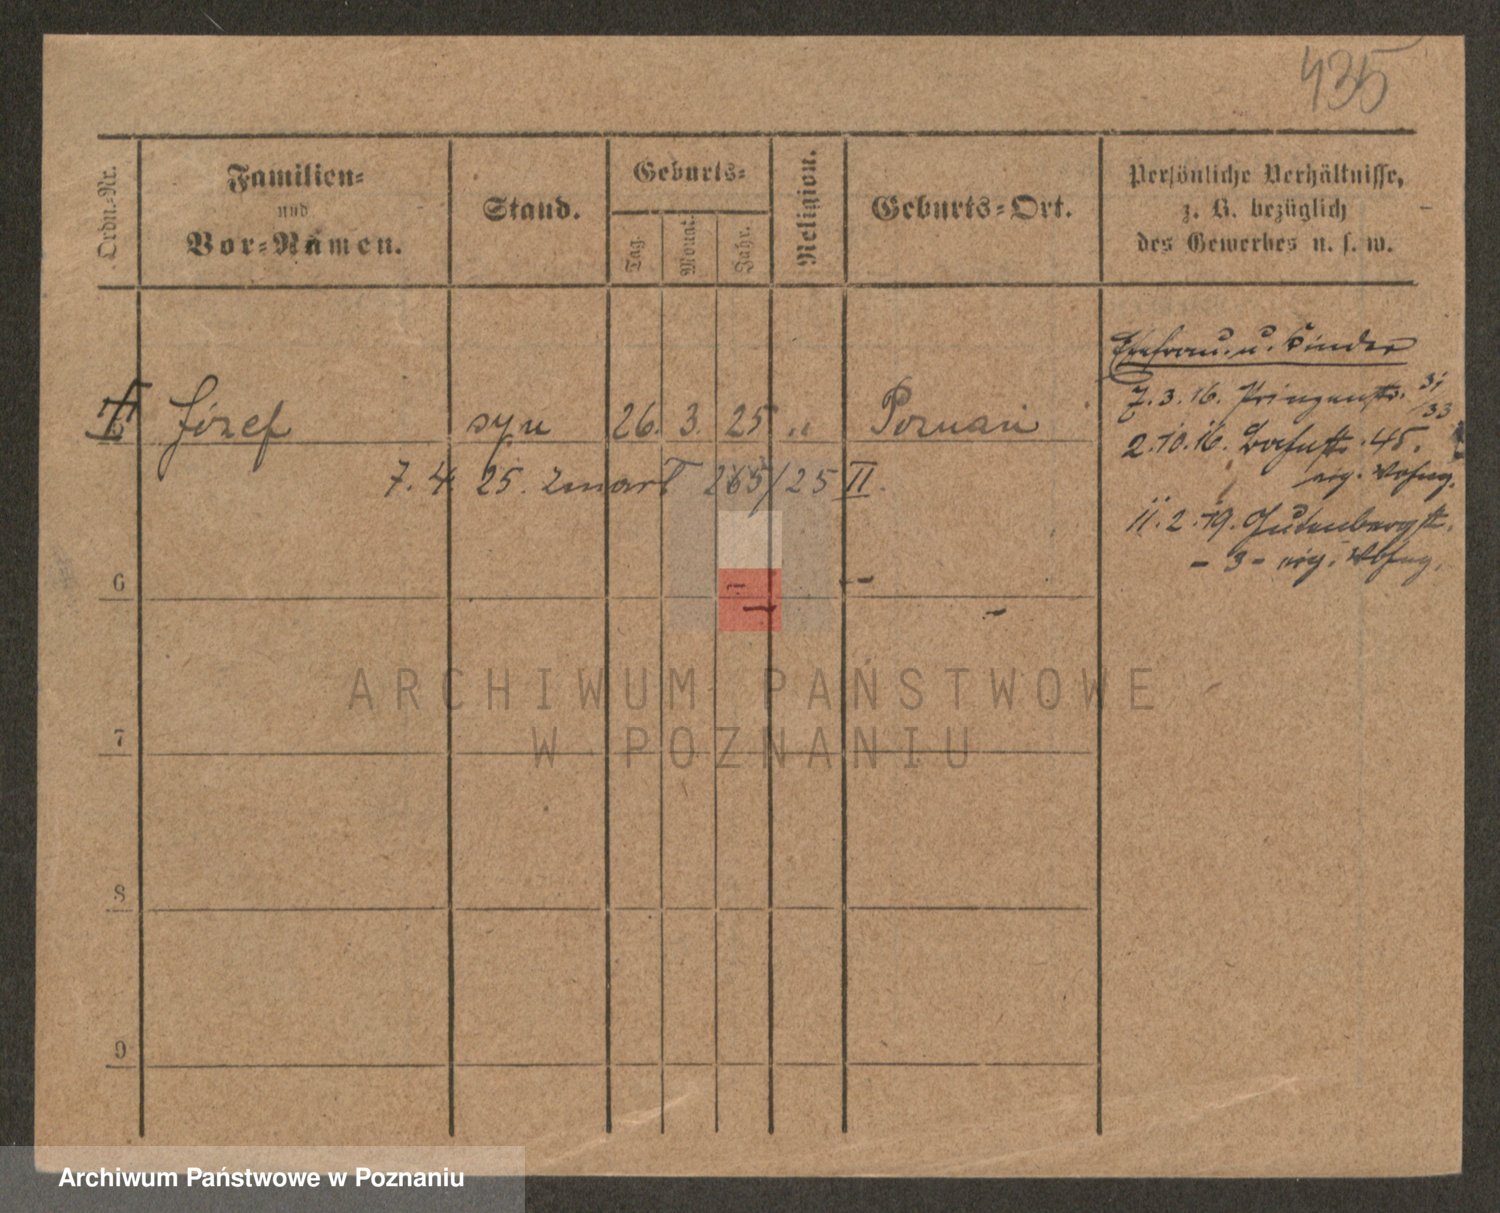 435
Ordn.-Nr.
Familien-
und
Vor-Namen.
Stand.
Geburts-
Tag.
Monat.
Jahr.
Religion.
Geburts-Ort.
Persönliche Verhältnisse,
z. B. bezüglich
des Gewerbes u. s. w.
Ehefrau u. Kinder
Józef syn 26. 3. 25 „ Poznań
7. 4. 25. zmarł 265/25 II.
7. 3. 16. Prinzenstr. 31/33
2. 10. 16. 45.
eig. Wohng.
11. 2. 19. Gutenbergstr.
- 3 - eig. Wohng.
6
7
8
9
ARCHIWUM PAŃSTWOWE
W POZNANIU
Archiwum Państwowe w Poznaniu